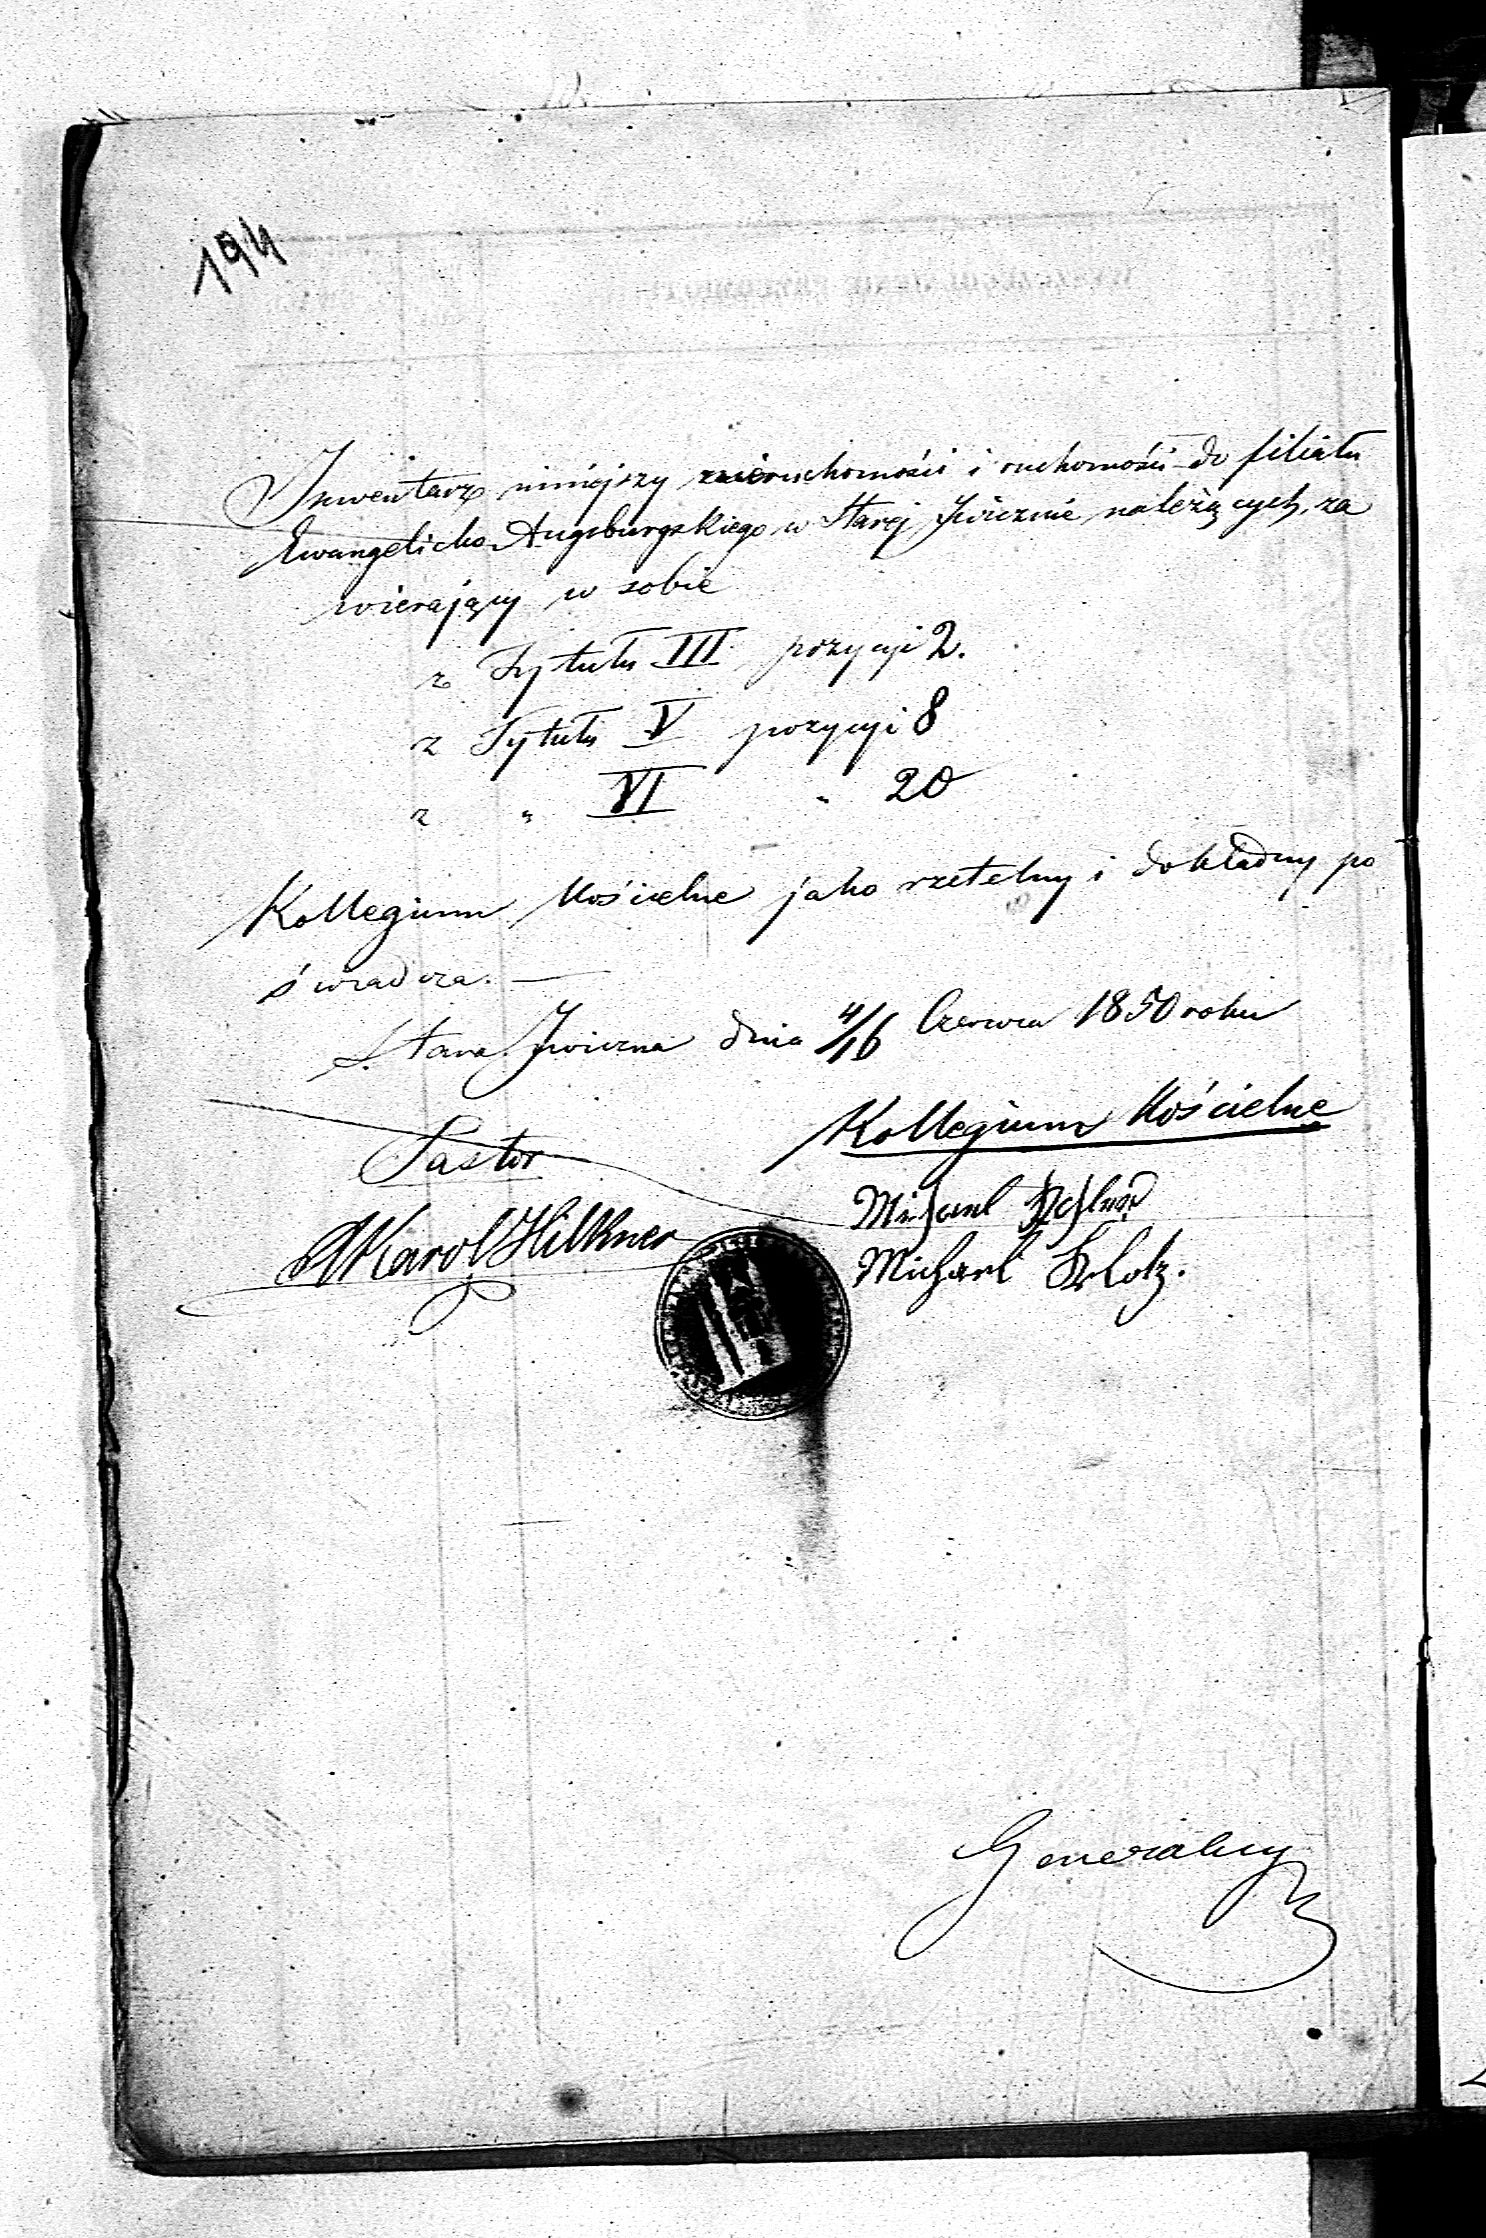 194
Inwentarz niniejszy nieruchomości i ruchomości do filiału
Ewangelicko Augsburgskiego w Starej Iwicznie należących, za
wierający w sobie
z Tytułu III pozycyi 2.
z Tytułu V pozycyi 8
z " VI " 20
Kollegium Kościelne jako rzetelny i dokładny po
świadcza. —
Stara Iwiczna dnia 4/16 Czerwca 1850 roku
Pastor
Kollegium Kościelne
Karol Hilkner
Michael
Michael
Generalny